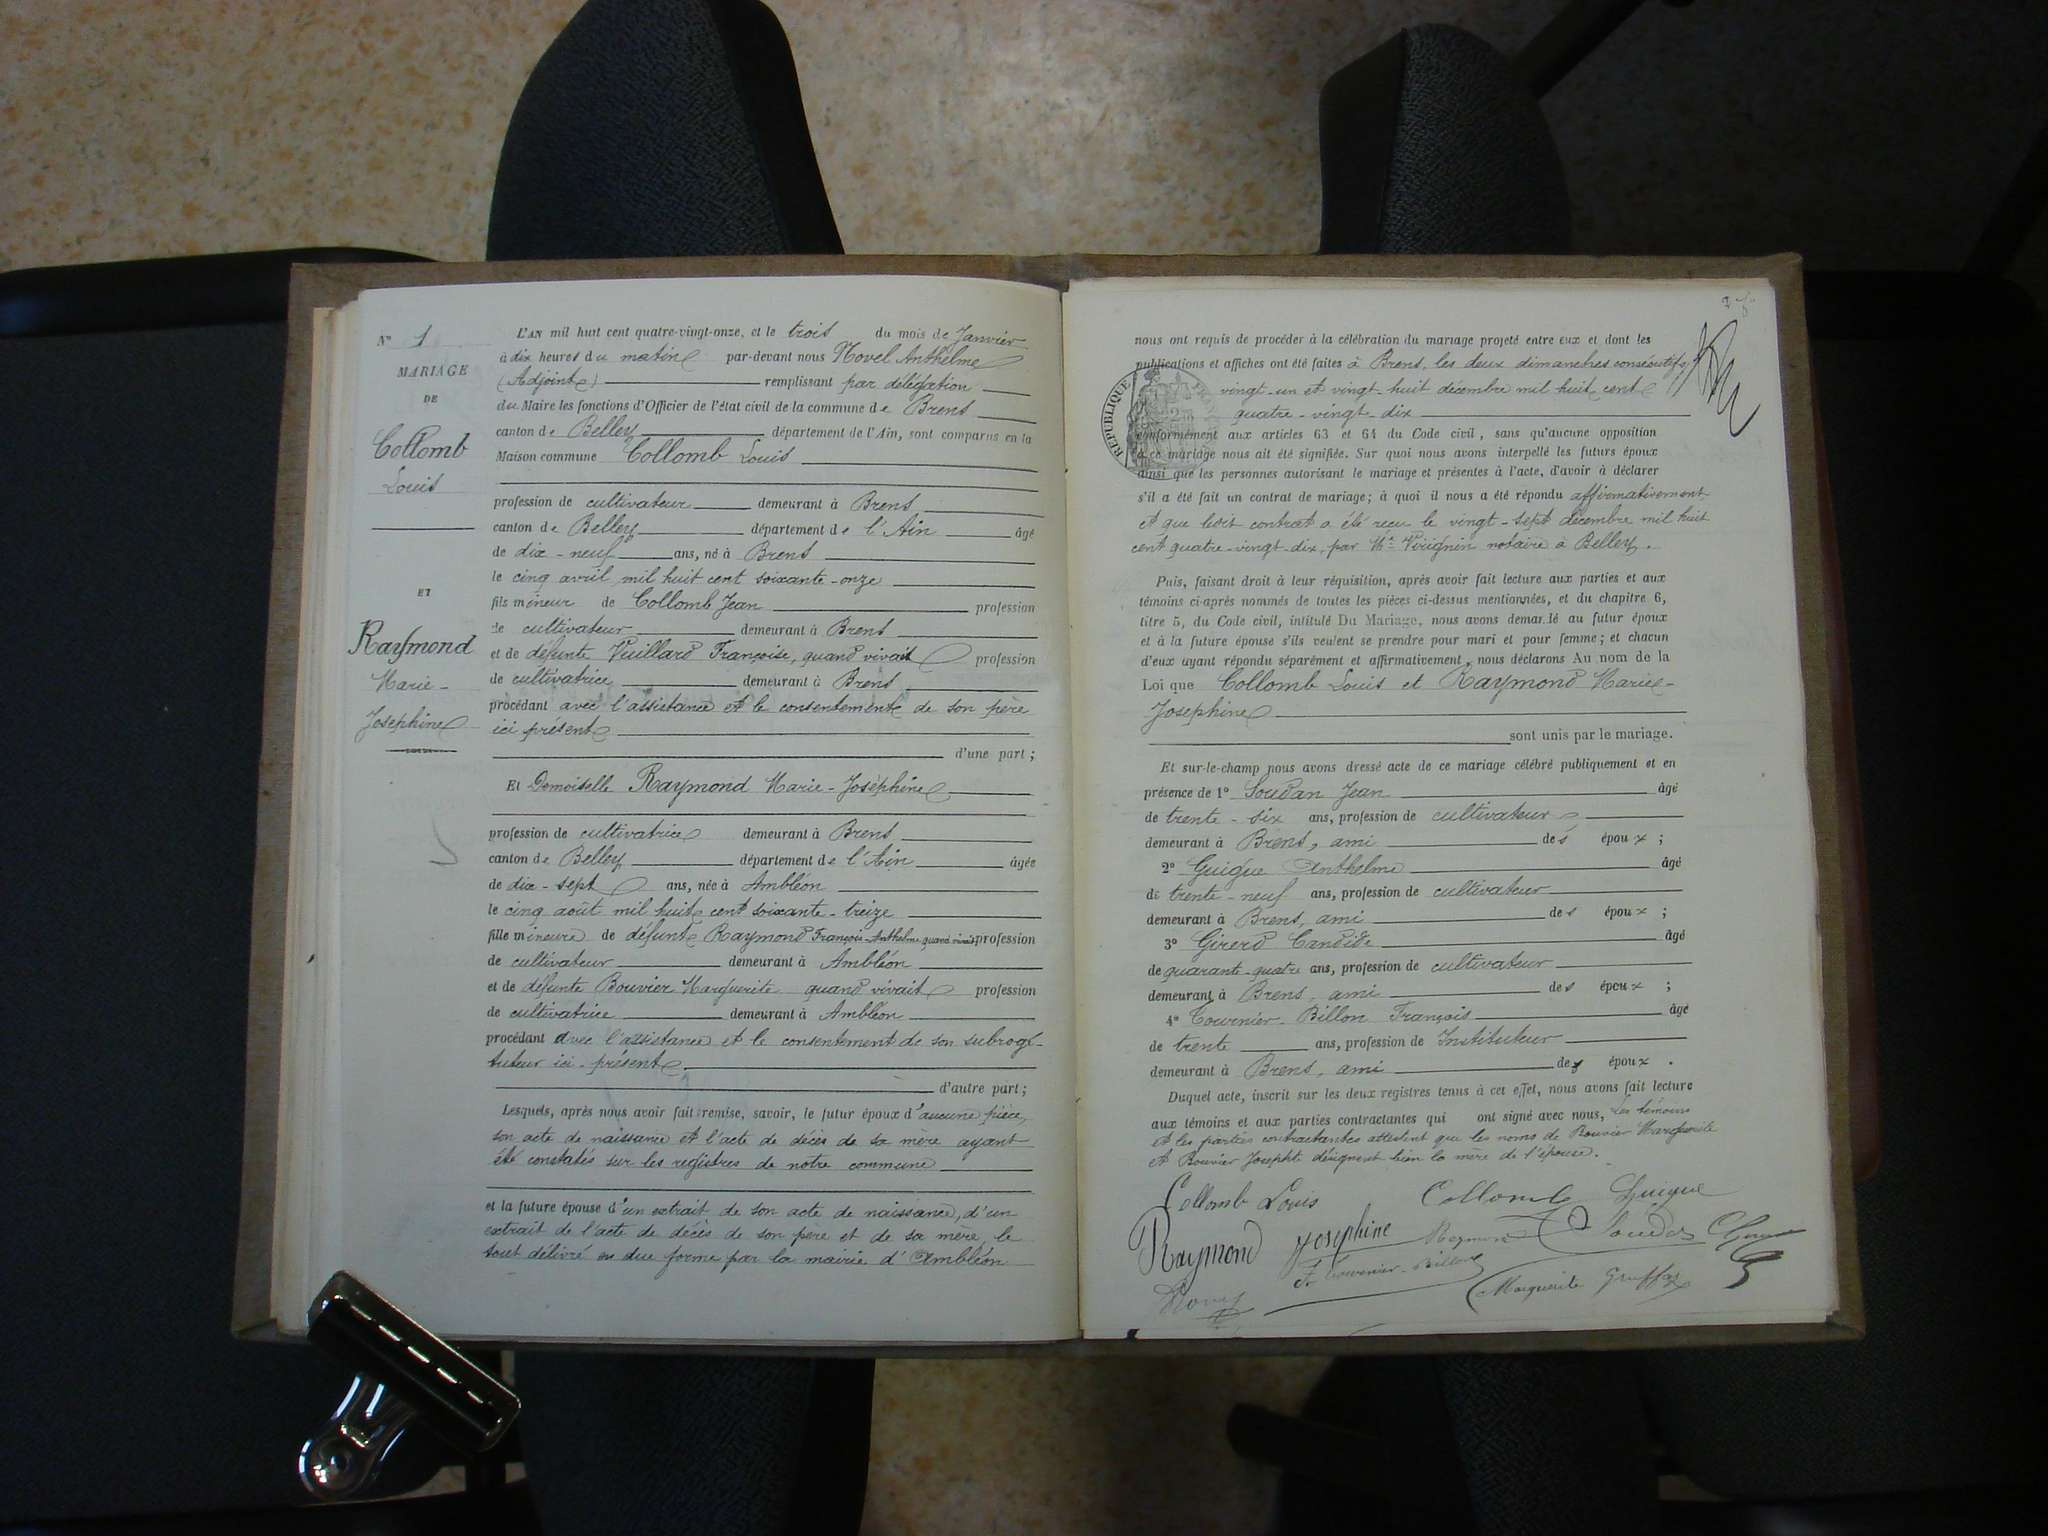 N° 1
MARIAGE
DE
Collomb
Louis
ET
Raymond
Marie-
Josephine
L'AN mil huit cent quatre-vingt-onze, et le trois du mois de Janvier
à dix heures du matin par-devant nous Novel Anthelme
(Adjoint) remplissant par délégation
du Maire les fonctions d'Officier de l'état civil de la commune de Brens
canton de Belley département de l'Ain, sont comparus en la
Maison commune Collomb Louis
profession de cultivateur demeurant à Brens
canton de Belley département de l'Ain âgé
de dix-neuf ans, né à Brens
le cinq avril mil huit cent soixante-onze
fils mineur de Collomb Jean profession
de cultivateur demeurant à Brens
et de défunte Vuillard Françoise, quand vivait profession
de cultivatrice demeurant à Brens
procédant avec l'assistance et le consentement de son père
ici présent
d'une part ;
Et Demoiselle Raymond Marie-Joséphine
profession de cultivatrice demeurant à Brens
canton de Belley département de l'Ain âgée
de dix-sept ans, née à Ambléon
le cinq août mil huit cent soixante-treize
fille mineure de défunt Raymond François-Anthelme quand vivait profession
de cultivateur demeurant à Ambléon
et de défunte Bouvier Marguerite quand vivait profession
de cultivatrice demeurant à Ambléon
procédant avec l'assistance et le consentement de son subrogé-
tuteur ici présent
d'autre part ;
Lesquels, après nous avoir fait remise, savoir, le futur époux d'aucune pièce,
son acte de naissance et l'acte de décès de sa mère ayant
été constatés sur les registres de notre commune
et la future épouse d'un extrait de son acte de naissance, d'un
extrait de l'acte de décès de son père et de sa mère, le
tout délivré en due forme par la mairie d'Ambléon
2
nous ont requis de procéder à la célébration du mariage projeté entre eux et dont les
publications et affiches ont été faites à Brens, les deux dimanches consécutifs,
vingt-un et vingt-huit décembre mil huit cent
quatre-vingt-dix
RÉPUBLIQUE FRANÇAISE
conformément aux articles 63 et 64 du Code civil, sans qu'aucune opposition
à ce mariage nous ait été signifiée. Sur quoi nous avons interpellé les futurs époux
ainsi que les personnes autorisant le mariage et présentes à l'acte, d'avoir à déclarer
s'il a été fait un contrat de mariage ; à quoi il nous a été répondu affirmativement
et que le contrat a été reçu le vingt-sept décembre mil huit
cent quatre-vingt-dix, par Me Virignin notaire à Belley.
Puis, faisant droit à leur réquisition, après avoir fait lecture aux parties et aux
témoins ci-après nommés de toutes les pièces ci-dessus mentionnées, et du chapitre 6,
titre 5, du Code civil, intitulé Du Mariage, nous avons demandé au futur époux
et à la future épouse s'ils veulent se prendre pour mari et pour femme ; et chacun
d'eux ayant répondu séparément et affirmativement, nous déclarons Au nom de la
Loi que Collomb Louis et Raymond Marie-
Josephine
sont unis par le mariage.
Et sur-le-champ nous avons dressé acte de ce mariage célébré publiquement et en
présence de 1° Soudan Jean âgé
de trente-six ans, profession de cultivateur
demeurant à Brens, ami des époux ;
2° Guigue Anthelme âgé
de trente-neuf ans, profession de cultivateur
demeurant à Brens, ami des époux ;
3° Girerd Candide âgé
de quarante-quatre ans, profession de cultivateur
demeurant à Brens, ami des époux ;
4° Tournier-Billon François âgé
de trente ans, profession de Instituteur
demeurant à Brens, ami des époux .
Duquel acte, inscrit sur les deux registres tenus à cet effet, nous avons fait lecture
aux témoins et aux parties contractantes qui ont signé avec nous, Les témoins
et les parties contractantes attestent que les noms de Bouvier Marguerite
et Bouvier Josephte désignent bien la mère de l'épouse.
Collomb Louis Collomb Guigue
Raymond Josephine Raymond Soudan
Fr Tournier-Billon Marguerite Gruffaz
Novel